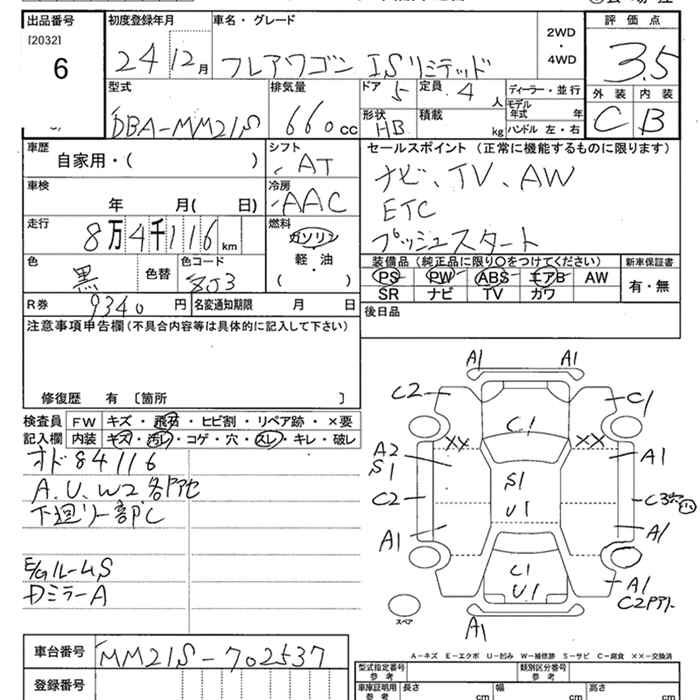 出品番号
[2032]
6
初度登録年月
24 12月
車名・グレード
フレアワゴン ISリミテッド
2WD
・
4WD
評価点
3.5
外装 内装
C B
型式
DBA-MM21S
排気量
660cc
ドア 5
定員 4人
ディーラー・並行
モデル年式 年
形状 HB
積載 kg
ハンドル 左・右
車歴
自家用・( )
シフト
AT
車検
年 月( 日)
冷房
AAC
走行
8万4千116km
燃料
ガソリン
軽・油
( )
色
黒
色替
色コード
ZJ3
R券 9340円
名変通知期限 月 日
セールスポイント (正常に機能するものに限ります)
ナビ、TV、AW
ETC
プッシュスタート
装備品 (純正品に限り○をつけてください)
新車保証書
PS PW ABS エアB AW
有・無
SR ナビ TV カワ
後日品
注意事項申告欄 (不具合内容等は具体的に記入して下さい)
修復歴 有 〔箇所 〕
検査員記入欄
FW キズ・飛石・ヒビ割・リペア跡・×要
内装 キズ・汚レ・コゲ・穴・スレ・キレ・破レ
オド84116
A.U.W2.各所他
下廻り一部C
E/GルームS
DミラーA
A1 A1
C2 C1
C1
XX XX
A2
S1
A1
S1
C2
C3穴小
U1
A1 A1
C1
U1
A1
C2Pアリ
スペア
A1
A-キズ E-エクボ U-凹み W-補修跡 S-サビ C-腐食 ××-交換済
車台番号
MM21S-702537
登録番号
型式指定番号
参考
類別区分番号
参考
車庫証明用
参考
長さ cm
幅 cm
高さ cm